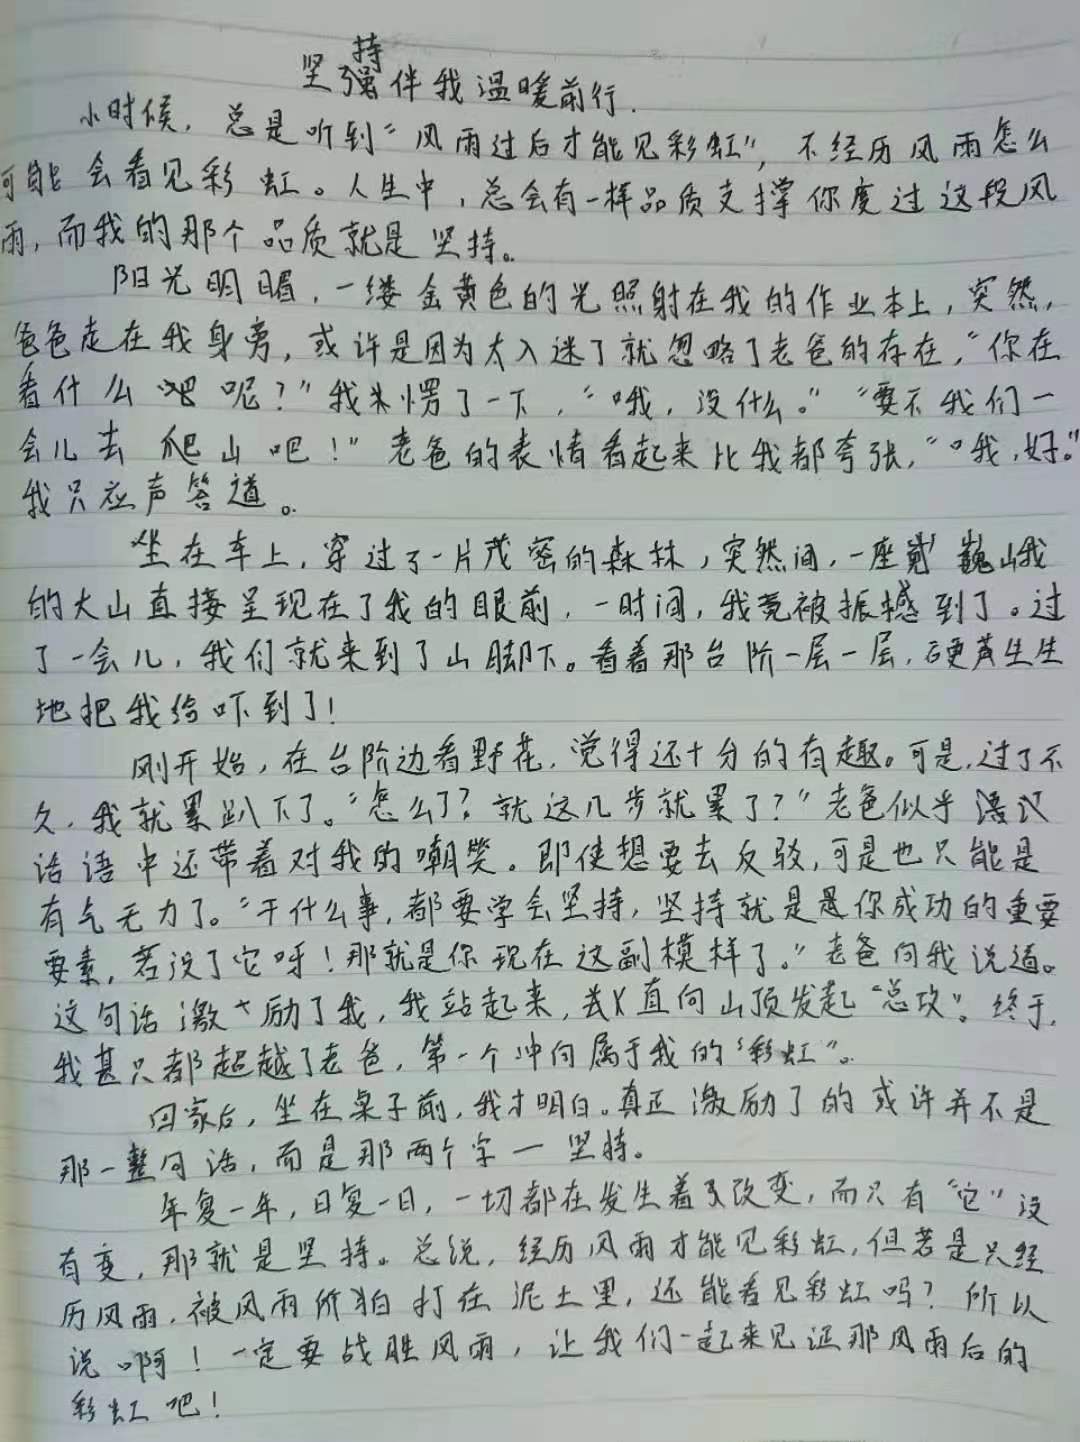 坚持伴我温暖前行.
小时候，总是听到“风雨过后才能见彩虹”，不经历风雨怎么
可能会看见彩虹。人生中，总会有一样品质支撑你度过这段风
雨，而我的那个品质就是坚持。
阳光明媚，一缕金黄色的光照射在我的作业本上，突然，
爸爸走在我身旁，或许是因为太入迷了就忽略了老爸的存在，“你在
看什么呢？”我愣了一下，“哦，没什么。”“要不我们一
会儿去爬山吧！”老爸的表情看起来比我都夸张，“哦，好。”
我只应声答道。
坐在车上，穿过了一片茂密的森林，突然间，一座巍峨
的大山直接呈现在了我的眼前，一时间，我竟被振撼到了。过
了一会儿，我们就来到了山脚下。看着那台阶一层一层，硬生生
地把我给吓到了！
刚开始，在台阶边看野花，觉得还十分的有趣。可是，过了不
久，我就累趴下了。“怎么了？就这几步就累了？”老爸似乎
话语中还带着对我的嘲笑。即使想要去反驳，可是也只能是
有气无力了。“干什么事，都要学会坚持，坚持就是你成功的重要
要素，若没了它呀！那就是你现在这副模样了。”老爸向我说道。
这句话激励了我，我站起来，直向山顶发起“总攻”。终于，
我甚只都超越了老爸，第一个冲向属于我的“彩虹”。
回家后，坐在桌子前，我才明白。真正激励了的或许并不是
那一整句话，而是那两个字一坚持。
年复一年，日复一日，一切都在发生着改变，而只有“它”没
有变，那就是坚持。总说，经历风雨才能见彩虹，但若是只经
历风雨，被风雨所拍打在泥土里，还能看见彩虹吗？所以
说啊！一定要战胜风雨，让我们一起来见证那风雨后的
彩虹吧！